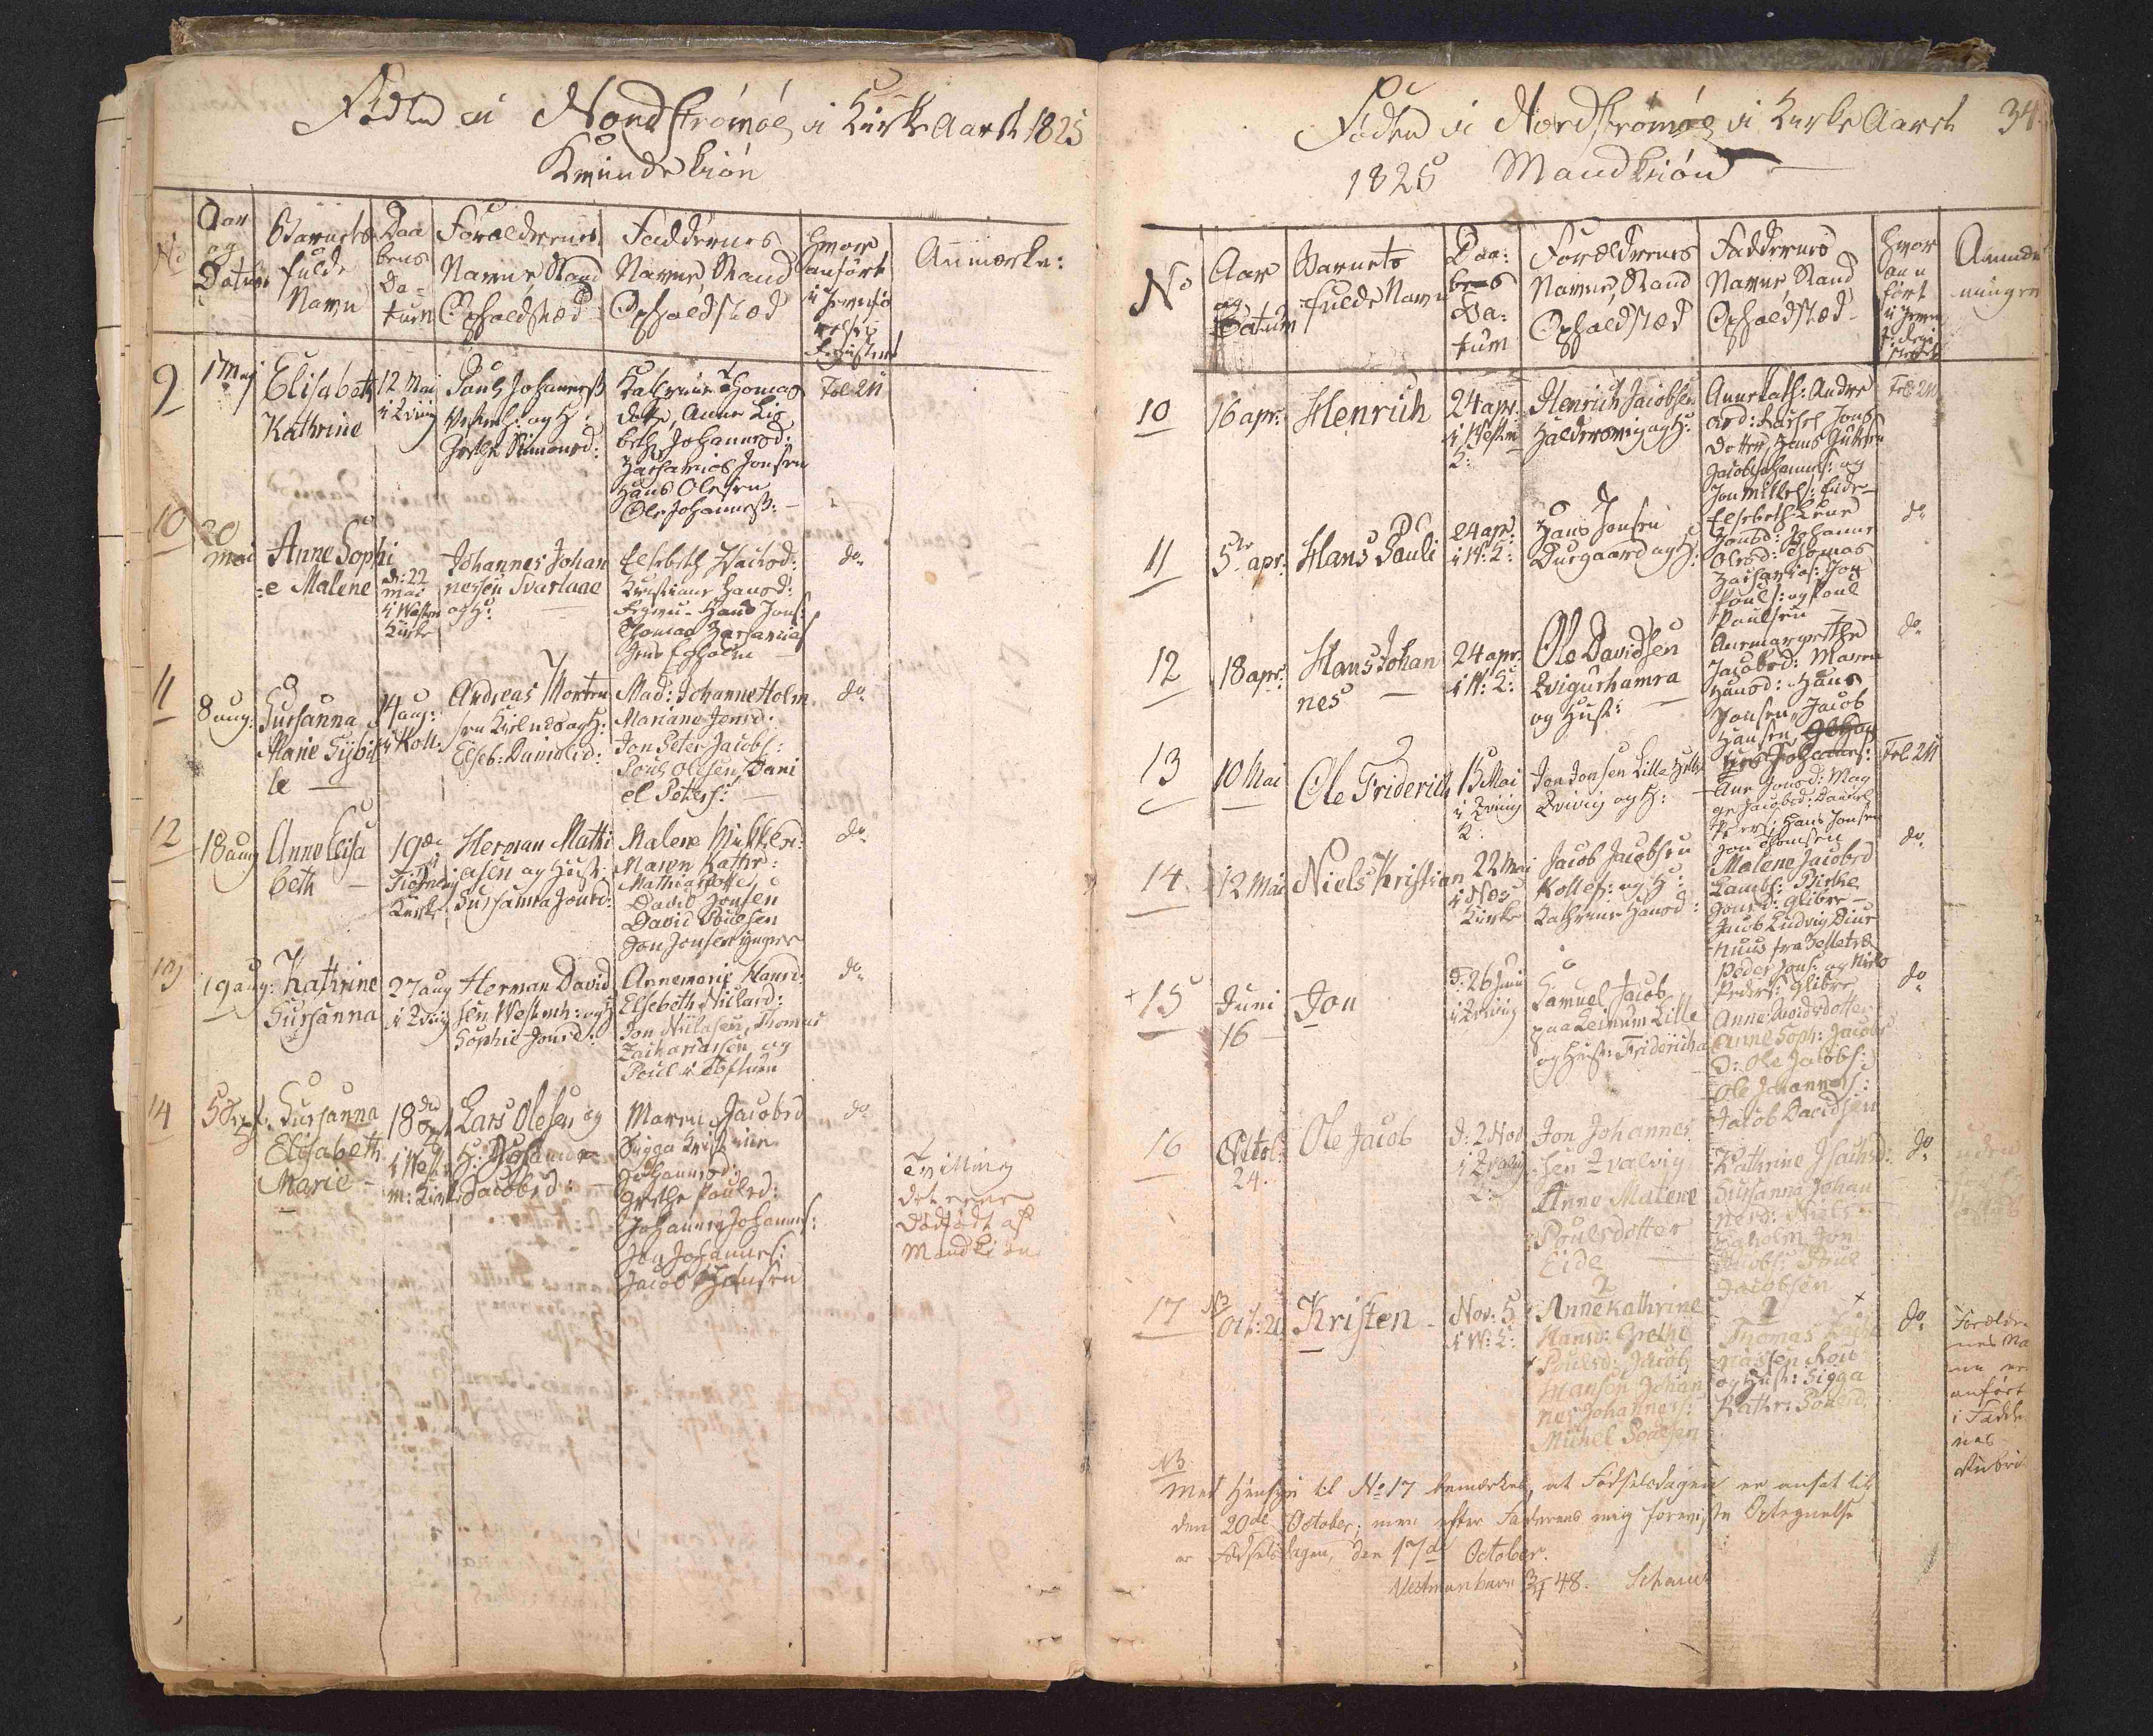 Føden i Nordstrømøe i KirkeAaret 1825
Kvindekiøn
No
Aar
og
Datum
Barnets
fulde
Navn
Daa
bens
Da-
tum
Forældrenes
Navne, Stand
Opholdsted
Faddernes
Navne, Stand
Opholdsted
hvor
anført
Anmærk:
9
1 Maj
Elisabeth
Kathrine
12 Mai
i Qvivig
Pouls Johanness
og H:
Grethe Simonsd:
Kathrine Thomas
datter, Anne Lis
beth Johannesd:
Zacharias Jonsen
Hans Olesen
Ole Johanness:
Fol 211
10
20
mai
Anne Sophi
=e Malene
d: 22
mai
i Westm
Kirke
Johannes Johan
nessen Svartaae
og H:
Elsebeth Isaksd:
Kristiane Hansd:
Hans Jons:
Thomas Zacharias
Jens
do
11
8 aug:
Sursanna
Marie Sybil
le
14 aug:
i Koll.
Andreas Morten
sen og H:
Elseb: Danielsd:
Mad: Johanne Holm
Mariane Jensd:
Jon Peter Jacobs:
Pouls Olesen, Dani
el Peters:
do
12
18 aug
Anne Elisa
beth
19de
i
Kirke
Herman Mathi
asen og Hust:
Sursanna Jonsd:
Malene Mikkels:
Maren Kathr:
Mathiasdotter
David Jonsen
David Poulsen
Jon Jonsen yngere
do
13
19 aug:
Kathrine
Sursanna
27 aug
i Qvivig
Herman David
sen Westmh: og H
Sophie Jonsd:
Annemarie Hansd:
Elsebeth Nielsd:
Jon Nielasen, Thomas
Zachariassen og
Poul
do
14
5 Sept.
Sursanna
Elisabeth
Marie
18de
Sept
i West
m: Kirke
Lars Olesen og
H: Johanna
Jacobsd:
Maren Jacobsd
Sigga Kristine
Johannesd:
Grethe Paulsd:
Johannes Johannes:
Jon Johannes:
Jacob Hansen
do
Tvilling
det ene
dødfødt af
Mandkiøn
Føden i Nordstrømøe i KirkeAaret
34.
1825 Mandkiøn
No
Aar
og
Datum
Barnets
fulde Navn
Daa:
bens
Da:
tum
Forældrenes
Navne, Stand
Opholdsted
Faddernes
Navne Stand
Opholdsted
hvor
an
ført
Anmærk
ningen
10
16 apr.
Henrich
24 apr.
i Westm
K:
Henrich Jacobsen
Haldersvig og H:
Anne Cath: Andre
asd: Rachel Jons
Datter, Hans
Jacob Johannes: og
Jon Mikkels: Eide
Fol 211
11
5te apr.
Hans Pauli
24 apr:
i W: K:
Hans Jonsen
Duegaard og H:
Elsebeth Lene
Hansd: Johanne
Olesd: Thomas
Zacharias: Jon
Pouls: og Poul
Paulsen
do
12
18 apr:
Hans Johan
nes
24 apr.
i W: K:
Ole Davidsen
Qvigurhamra
og Hust:
Annemargrethe
Jacobsd: Maren
Hansd: Hans
Jonsen, Jacob
Hansen,
do
13
10 Mai
Ole Friderich
15 Mai
i Qviuig
K:
Jon Jonsen Lille
Qvivig og H:
Ane Jonsd: Mag
ge Jacobsd: Daniel
Peters: Hans Jonsen
Jon Thomsen
Fol 211
14
12 Mai
Niels Kristian
22 Mai
i Næs
Kirke
Jacob Jacobsen
Kollef: og H:
Kathrine Hansd:
Malene Jacobsd
Lambs: Birke
Jonsd: Glibre
Jacob Ludvig
fra Selletræ
Peder Jons: og Niels
Peders: Glibre
do
15
Juni
16
Jon
d: 26 Juni
i Qviuig
Samuel Jacob
paa Leinum Lille
og Hust: Fridericha
Anne Davidsdotter
Anne Soph: Jacobs
D: Ole Jacobs:
Ole Johannes:
Jacob Davidsen
do
16
Octob:
24.
Ole Jacob
d: 2 Nov
i Qvalvig
K:
Jon Johannes
sen Qvalvig
Anne Malene
Poulsdotter
Eide
Kathrine Isachsd:
Sursanna Johan
Jon
Jacobs: Poul
Jacobsen
do
17
NB
Oct: 20
Kristen
Nov: 5
i W: K:
2
Anne Kathrine
Hansd: Grethe
Poulsd: Jacob
Hansen Johan
nes Johannes:
Michel Poulsen
1
Thomas
og Hust: Sigga
Kathr: Poulsd
do
Forældre
nes Na
vne er
anført
i Fadde
nes
Rubri
NB
Med Hensyn til No 17 bemærkes, at Fødselsdagen er ansat til
den 20de October; men efter Faderens mig foreviste Optegnelse
er Fødselsdagen, den 17de October.
Vestmanhavn 48.